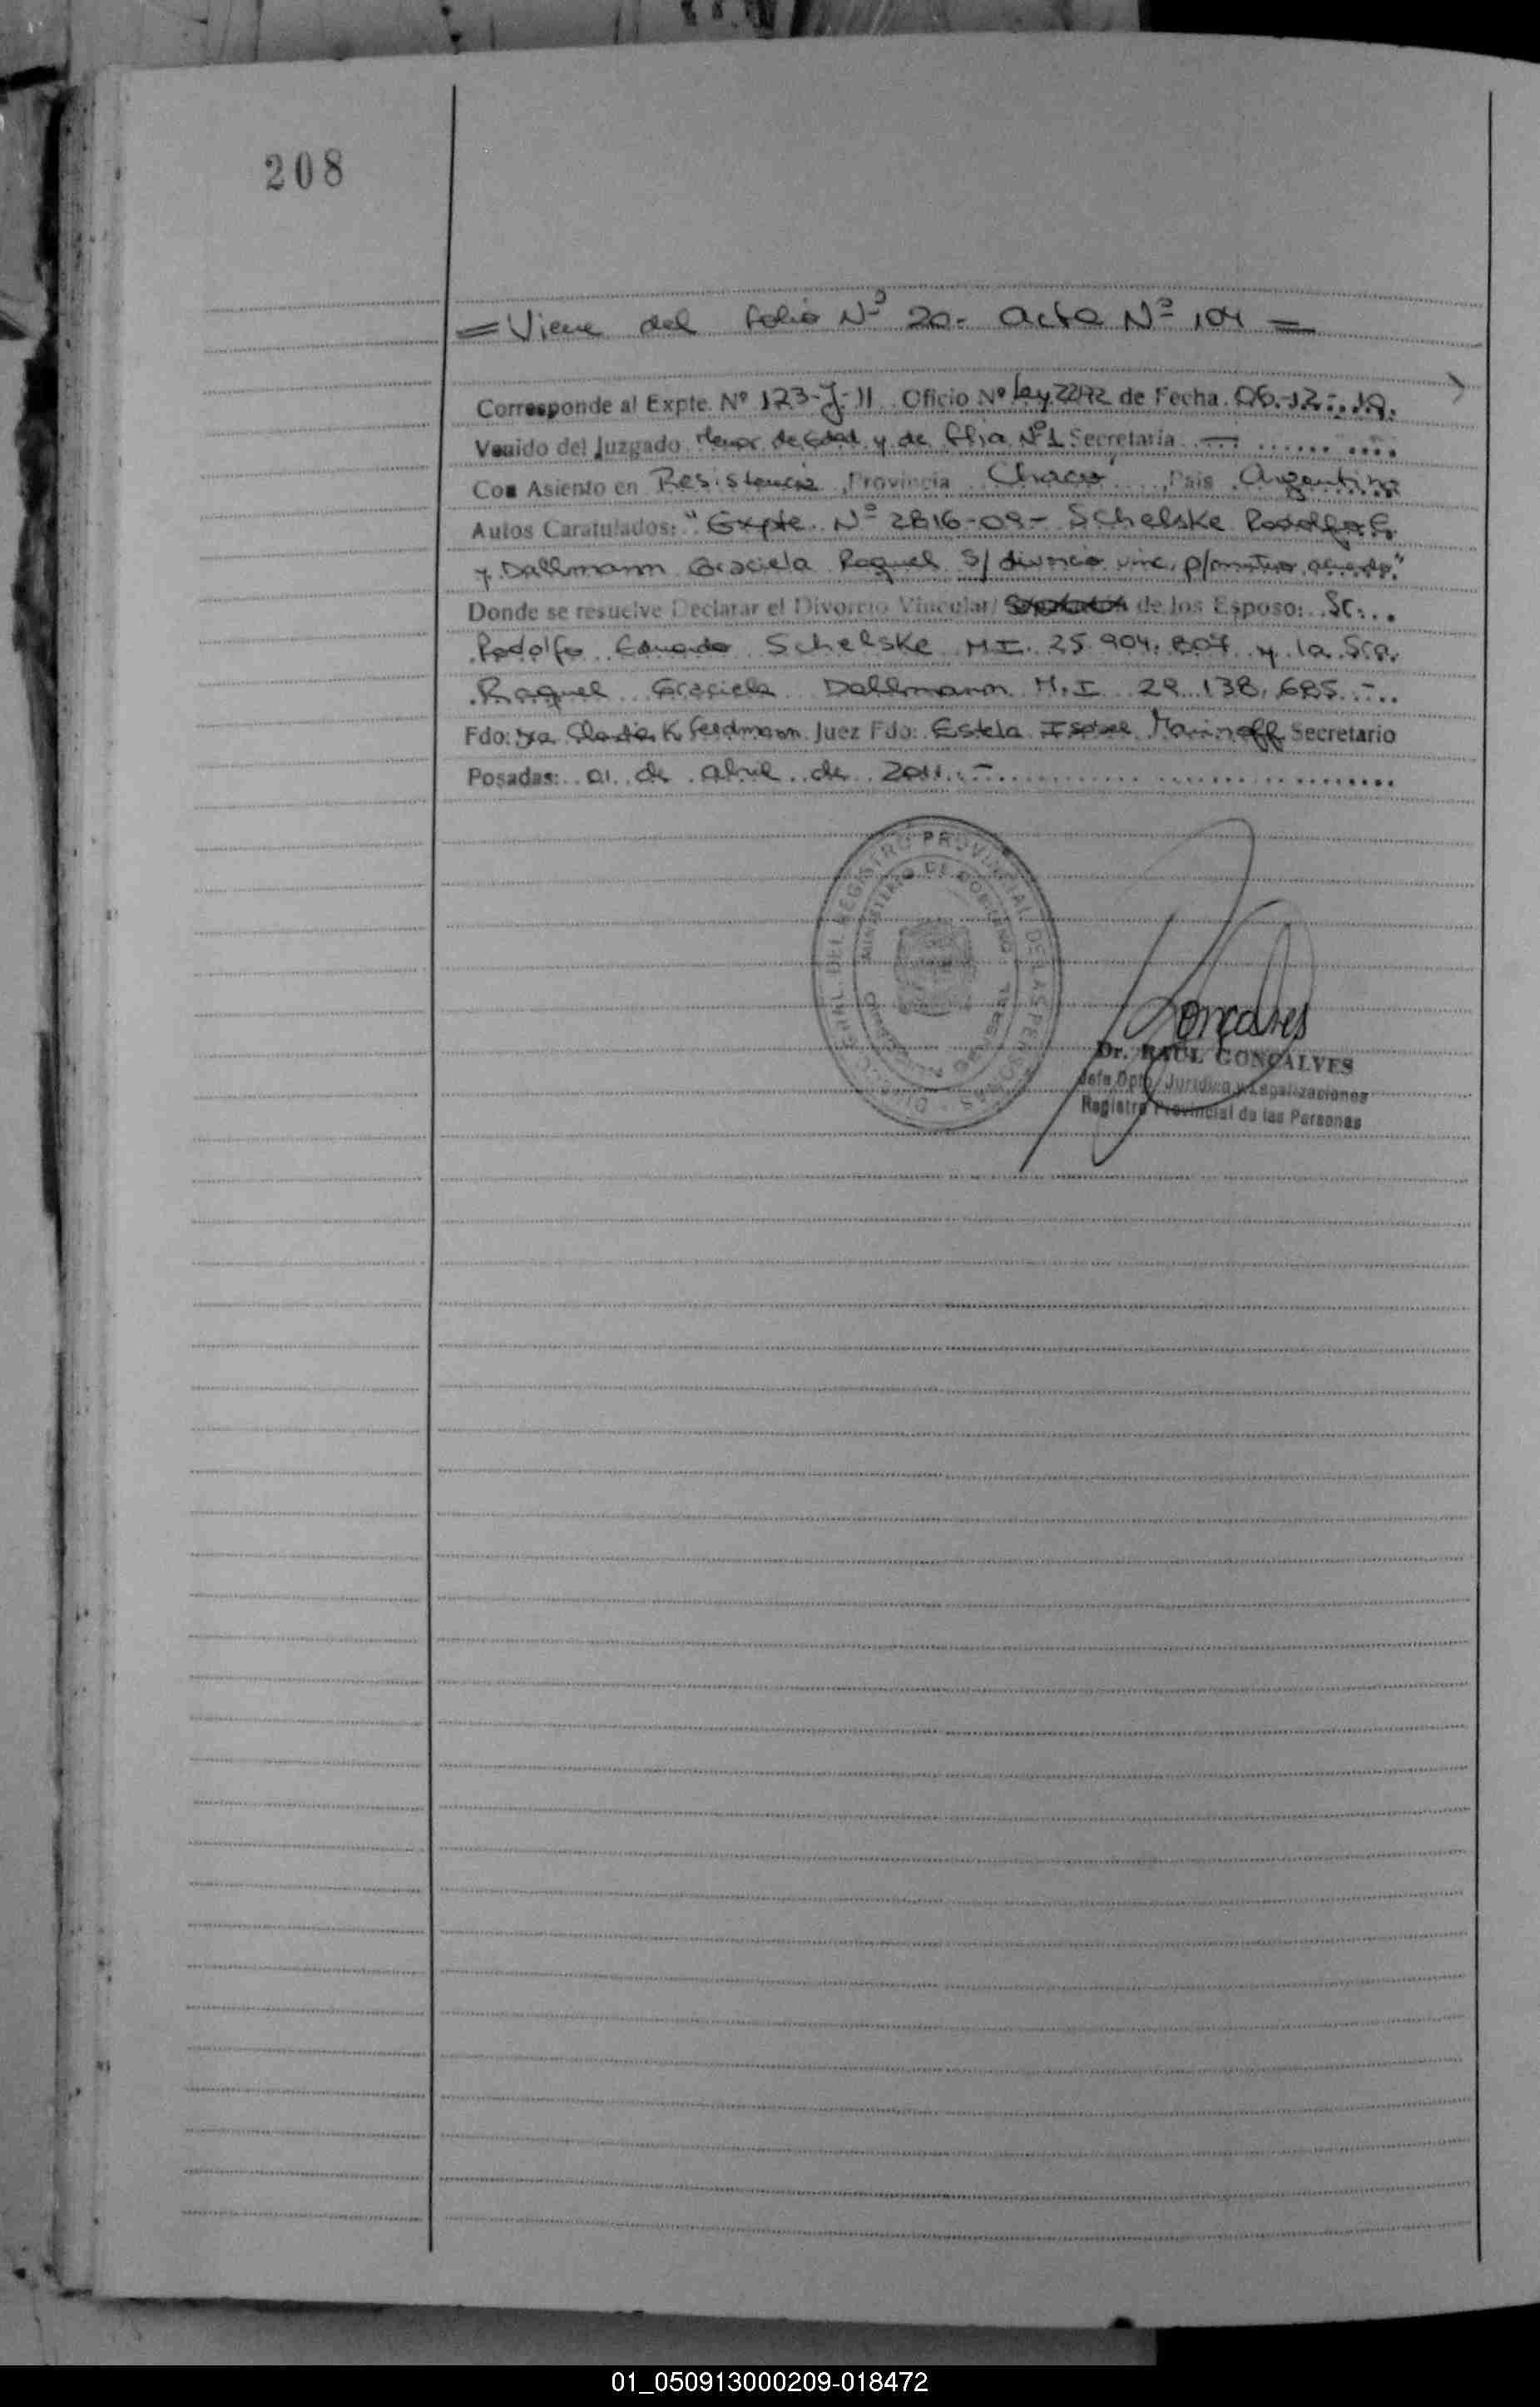 208
= Viene del folio Nº 20- acta Nº 104 =
Corresponde al Expte. Nº 123-J-11 Oficio Nº Ley 22172 de Fecha 06-12-10.
Venido del Juzgado Menor de Edad y de flia Nº1 Secretaria —
Con Asiento en Resistencia, Provincia Chaco, Pais Argentina
Autos Caratulados: "Expte. Nº 2816-09- Schelske Rodolfo E.
y Dallmann Graciela Raquel S/ divorcio vinc. p/mutuo acuerdo."
Donde se resuelve Declarar el Divorcio Vincular/ de los Esposo: Sr.
Rodolfo Eduardo Schelske M.I. 25.904.807 y la Sra.
Raquel Graciela Dallmann M.I. 29.138.685.-
Fdo: Dra K. Feldmann Juez Fdo: Estela Isabel Marinoff Secretario
Posadas: 01 de abril de 2011.-
DIRECC. GRAL. DEL REGISTRO PROVINCIAL DE LAS PERSONAS
MINISTERIO DE GOBIERNO
Gonçalves
Dr. RAUL GONÇALVES
Jefe Dpto. Jurídico y Legalizaciones
Registro Provincial de las Personas
01_050913000209-018472